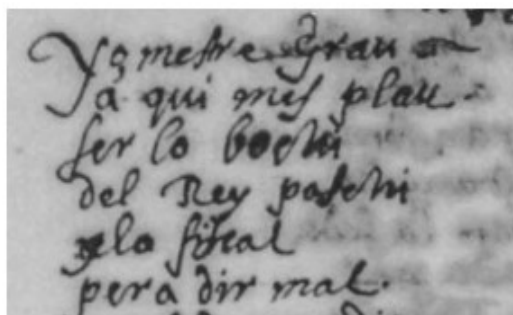 Yo mestre Grau
a qui mes plau
ser lo bochi
del Rey paschi
y lo fiscal
pera dir mal.